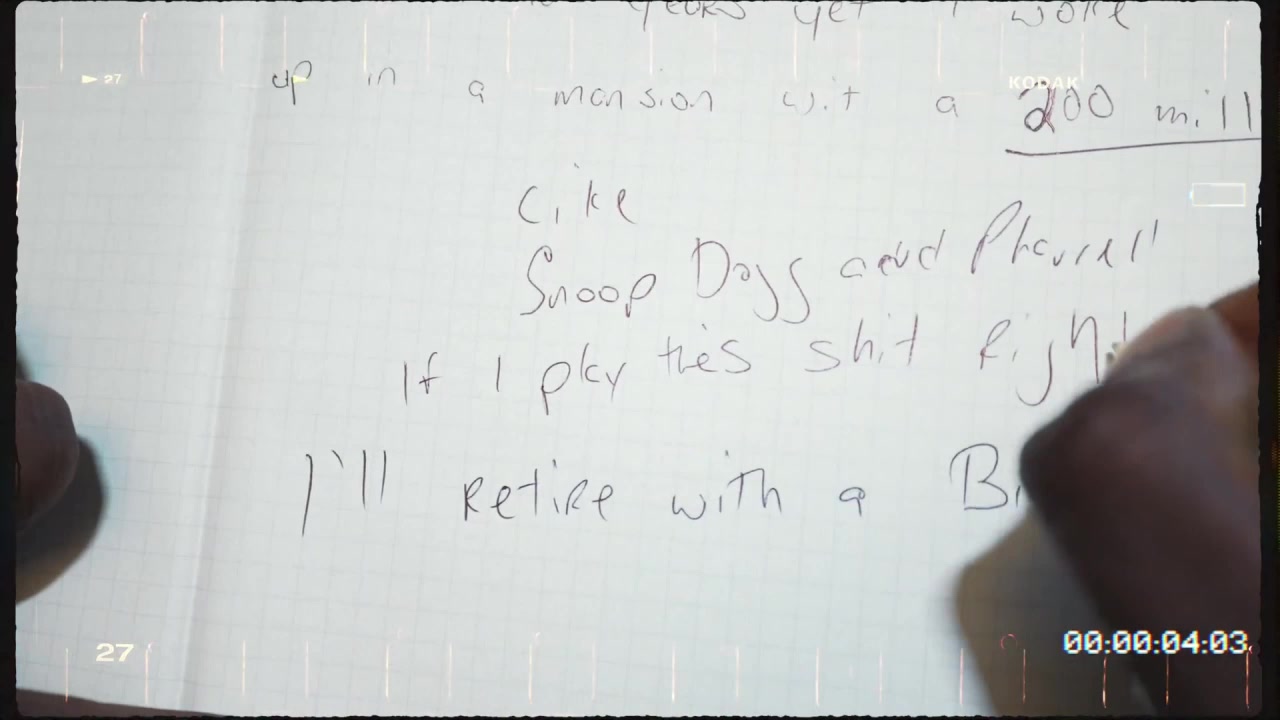 years yet I woke
up in a mansion wit a 200 mill
Like
Snoop Dogg and Pharrell
If I play this shit Right
I'll retire with a Bi
▶ 27
KODAK
27
00:00:04:03